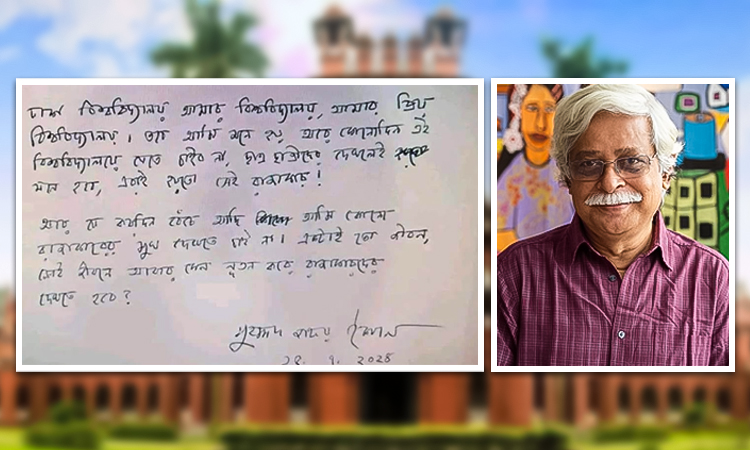 ঢাকা বিশ্ববিদ্যালয় আমার বিশ্ববিদ্যালয়, আমার প্রিয়
বিশ্ববিদ্যালয়। তবে আমি মনে হয় আর কোনোদিন এই
বিশ্ববিদ্যালয়ে যেতে চাইব না, ছাত্র ছাত্রীদের দেখলেই
মনে হবে, এরাই হয়তো সেই রাজাকার!
আর যে কয়দিন বেঁচে আছি আমি কোনো
রাজাকারের মুখ দেখতে চাই না। একটাই তো জীবন,
সেই জীবনে আবার কেন নূতন করে রাজাকারদের
দেখতে হবে?
মুহম্মদ জাফর ইকবাল
২০২৪